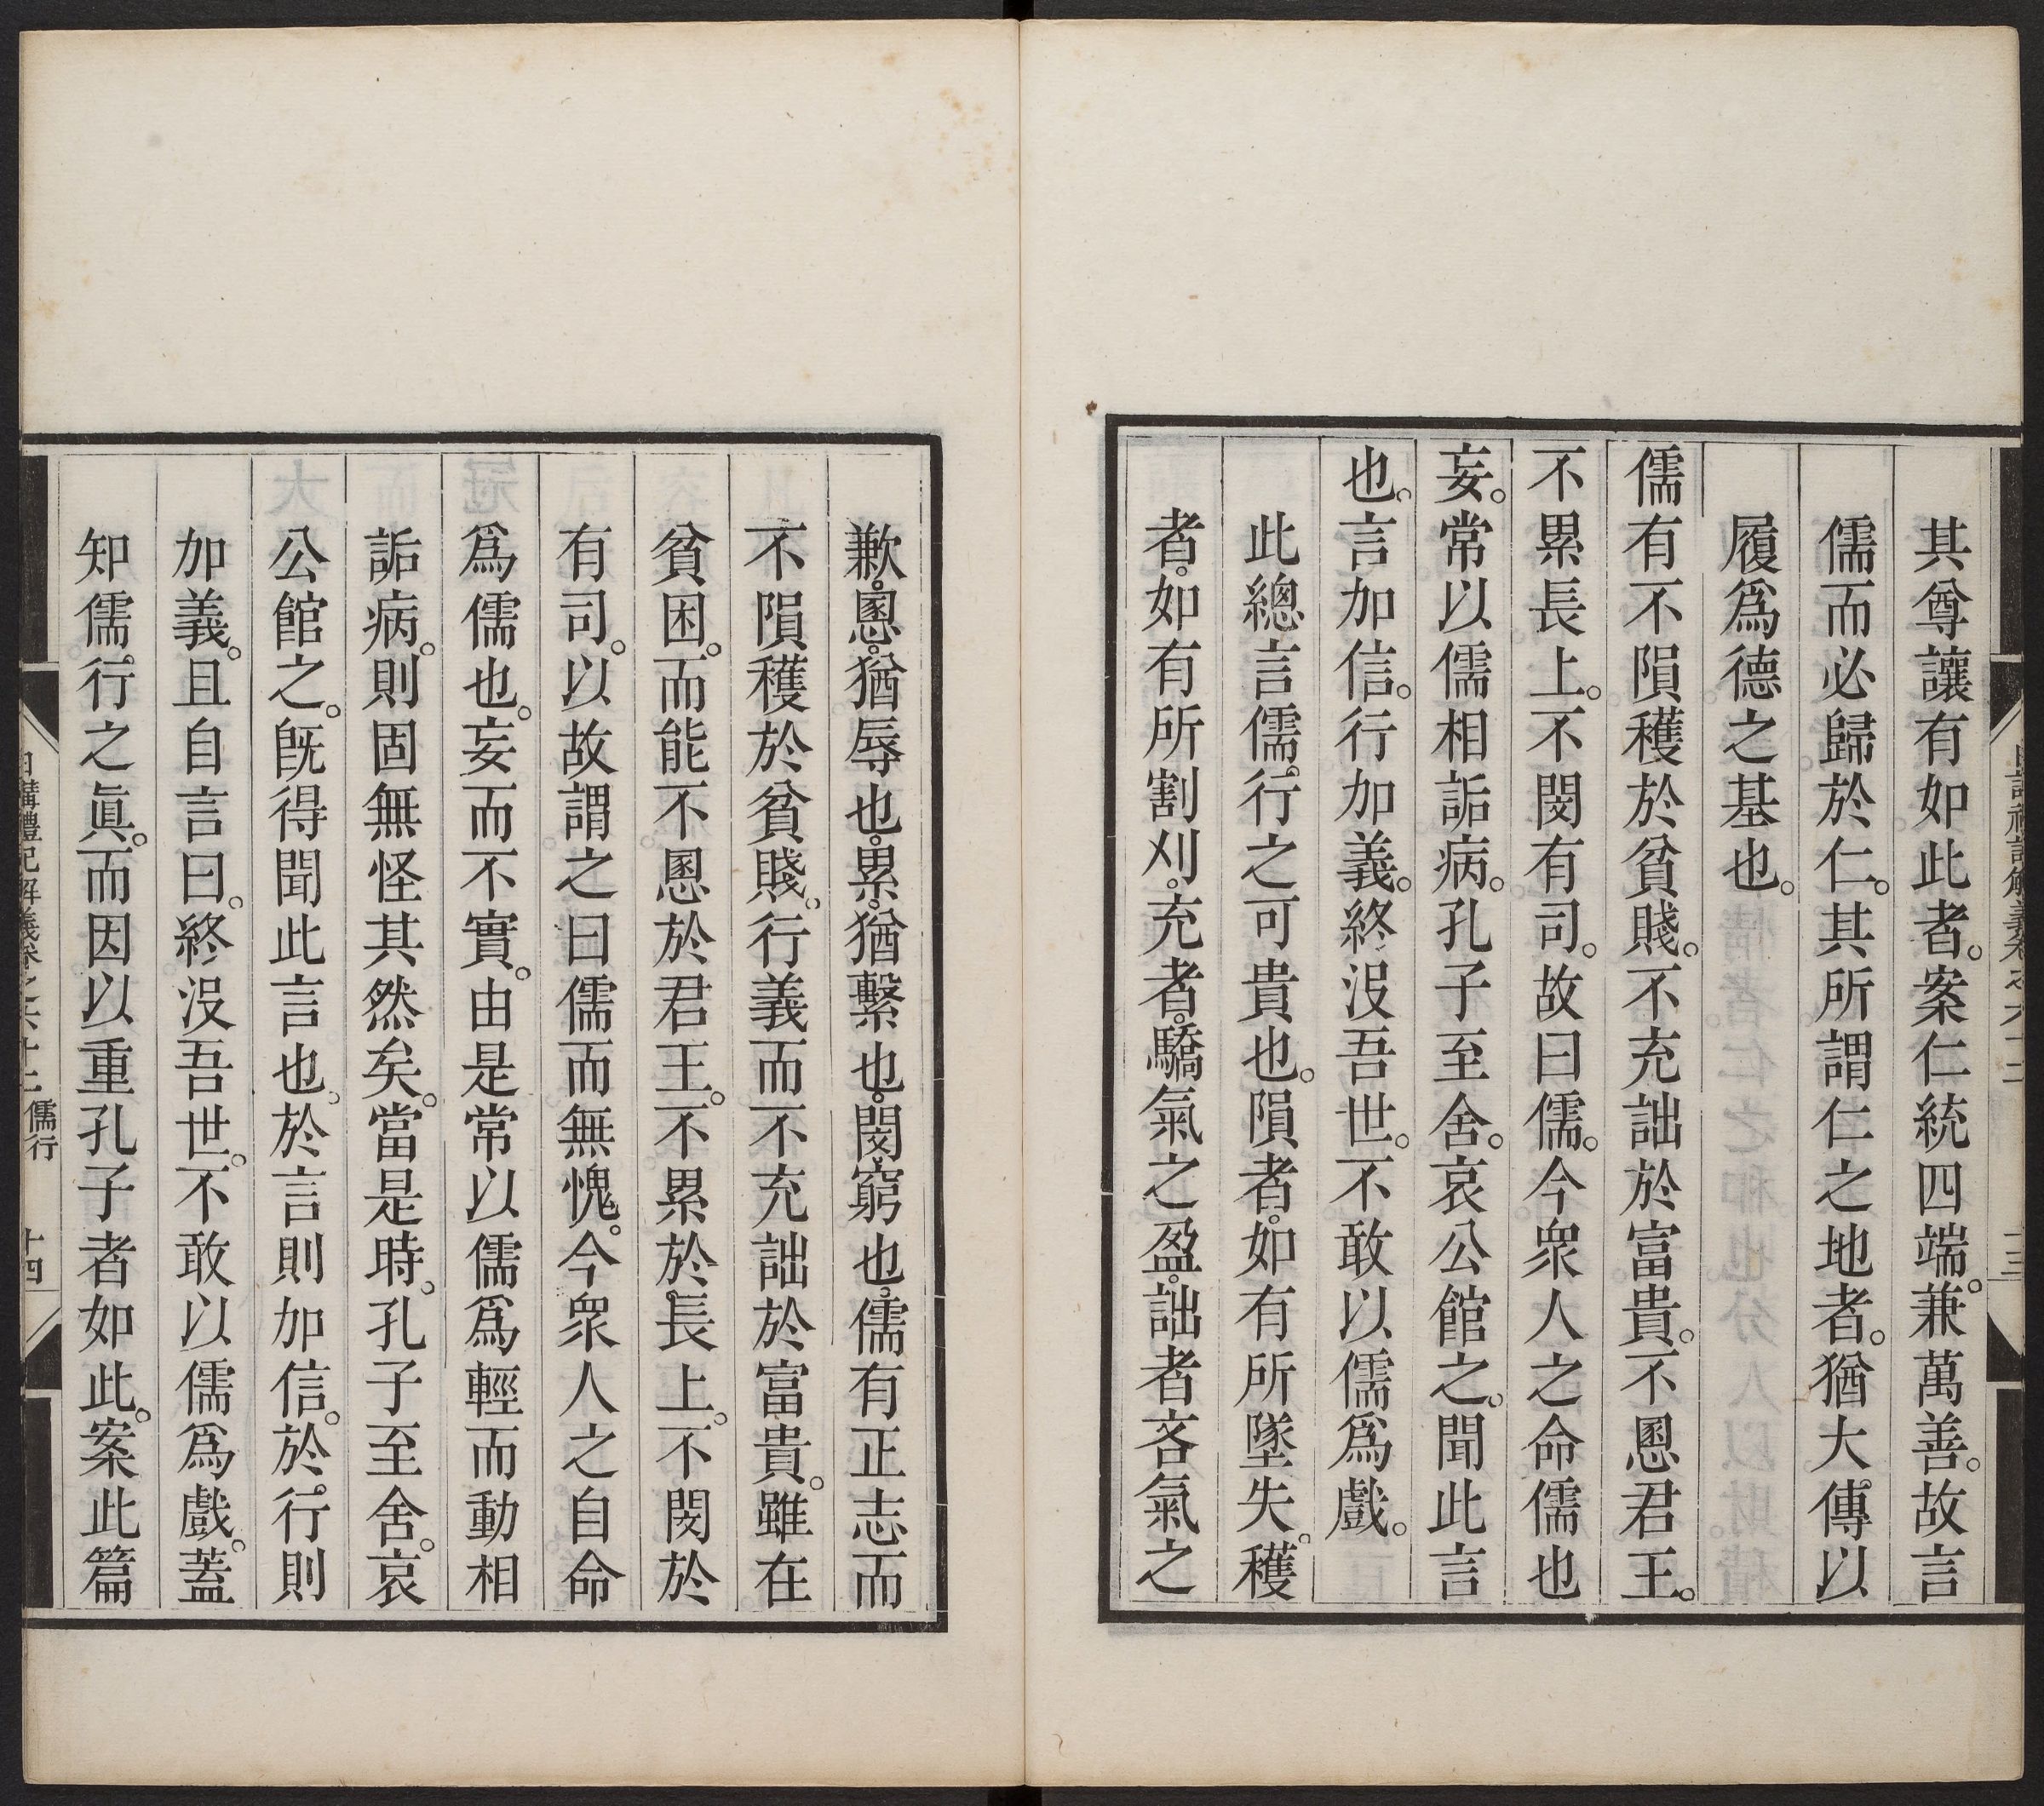 其尊讓有如此者。案仁統四端。兼萬善。故言
儒而必歸於仁。其所謂仁之地者。猶大傳以
履爲德之基也。
儒有不隕穫於貧賤。不充詘於富貴。不慁君王。
不累長上。不閔有司。故曰儒。今衆人之命儒也
妄。常以儒相詬病。孔子至舍。哀公館之。聞此言
也。言加信。行加義。終沒吾世。不敢以儒爲戲。
此總言儒行之可貴也。隕者。如有所墜失。穫
者。如有所割刈。充者。驕氣之盈。詘者吝氣之
歉。慁。猶辱也。累。猶繫也。閔。窮也。儒有正志而
不隕穫於貧賤。行義而不充詘於富貴。雖在
貧困。而能不慁於君王。不累於長上。不閔於
有司。以故謂之曰儒而無愧。今衆人之自命
爲儒也。妄而不實。由是常以儒爲輕而動相
詬病。則固無怪其然矣。當是時。孔子至舍。哀
公館之。旣得聞此言也。於言則加信。於行則
加義。且自言曰。終沒吾世。不敢以儒爲戲。蓋
知儒行之眞。而因以重孔子者如此。案此篇
日講禮記解義卷之六十二 儒行 十四